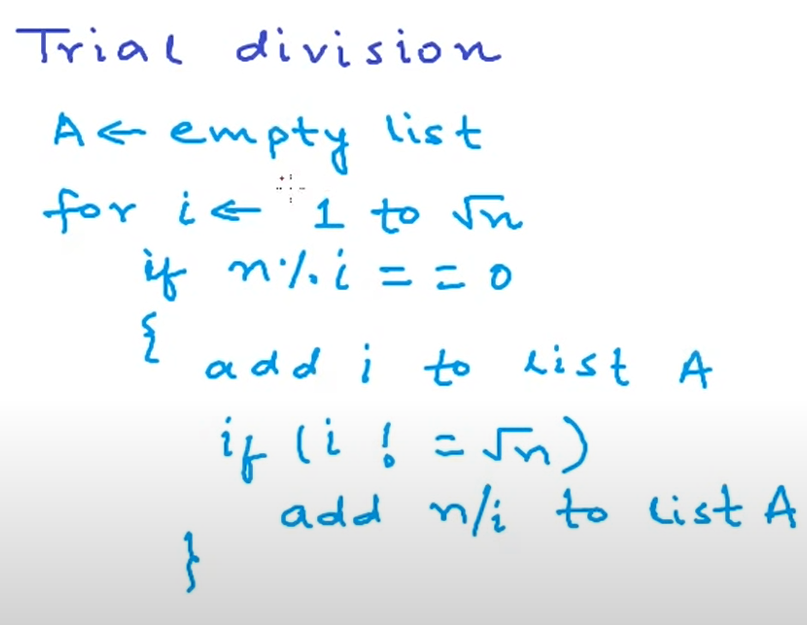 Trial division
A ← empty list
for i ← 1 to √n
if n % i = = 0
{
add i to list A
if (i ! = √n)
add n/i to list A
}